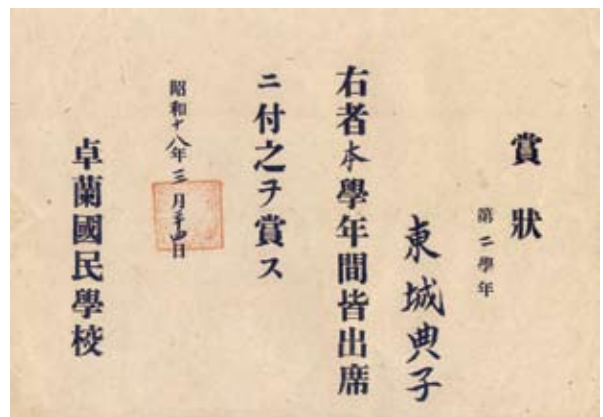 賞狀
第二學年
東城典子
右者本學年間皆出席
ニ付之ヲ賞ス
昭和十八年三月二十四日
卓蘭國民學校